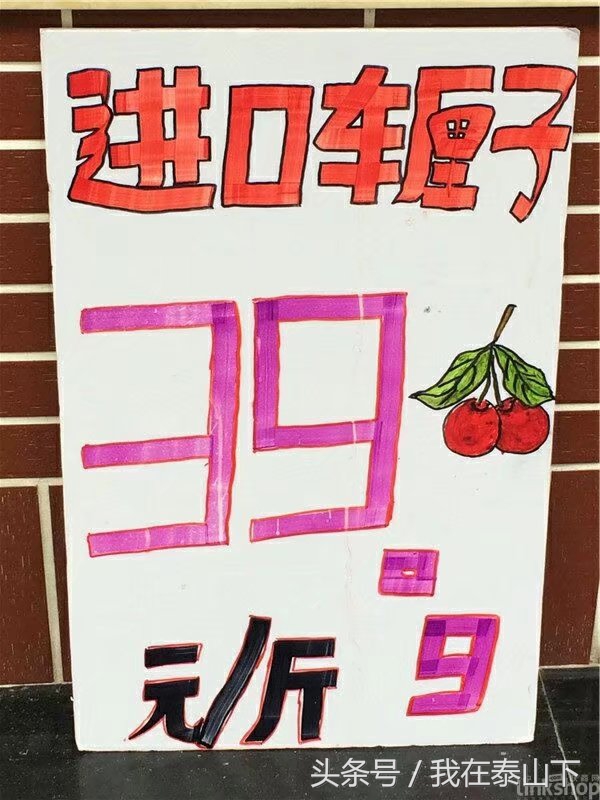 进口车厘子
39.9
元/斤
头条号/我在泰山下
linkshop